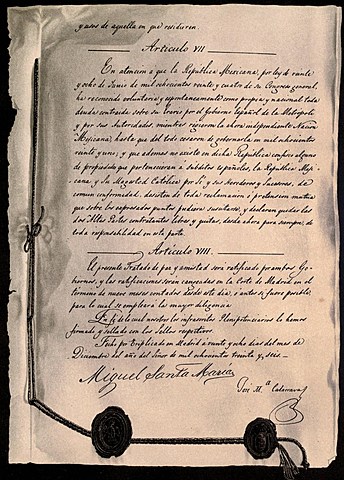 y usos de aquella en que residieren.
Articulo VII
En atencion a que la República Mexicana, por ley de veinte
y ocho de Junio de mil ochocientos veinte y cuatro de su Congreso general,
ha reconocido voluntaria y espontaneamente como propia y nacional toda
deuda contraida sobre su Erario por el Gobierno español de la Metropoli
y por sus autoridades, mientras rigieron la ahora independiente Nacion
Mejicana, hasta que del todo cesaron de gobernarla en mil ochocientos
veinte y uno; y que ademas no existe en dicha Republica confisco alguno
de propiedades que pertenecieran a Subditos españoles, la Republica Meji-
cana, y Su Magestad Catolica por Si y sus herederos y Sucesores, de
comun conformidad, desisten de toda reclamacion ó pretension mutua
que sobre los expresados puntos pudiera suscitarse, y declaran quedar las
dos Altas Partes contratantes libres y quitas, desde ahora para siempre, de
toda responsabilidad en esta parte.
Articulo VIII
El presente Tratado de paz y amistad será ratificado por ambos Go-
biernos, y las ratificaciones seran cangeadas en la Corte de Madrid en el
término de nueve meses contados desde este dia, ó antes si fuere posible,
para lo cual se empleará la mayor diligencia.
En fé de lo cual nosotros los infrascritos Plenipotenciarios lo hemos
firmado y sellado con los Sellos respectivos.
Fecho por triplicado en Madrid á veinte y ocho dias del mes de
Diciembre del año del Señor de mil ochocientos treinta y seis.
Miguel Santa Maria
José M.ª Calatrava